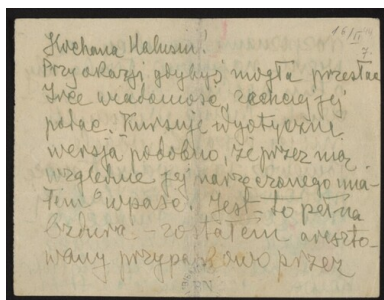 16/II
7.
Kochana Halusiu.
Przy okazji gdybyś mogła przesłać
Irce wiadomość, zachciej jej
podać. Kursuje wyłącznie
wersja podobno, że przez nią
względnie jej narzeczonego mia-
łem "wpaść". Jest to pełna
bzdura - zostałem areszto-
wany przypadkowo przez